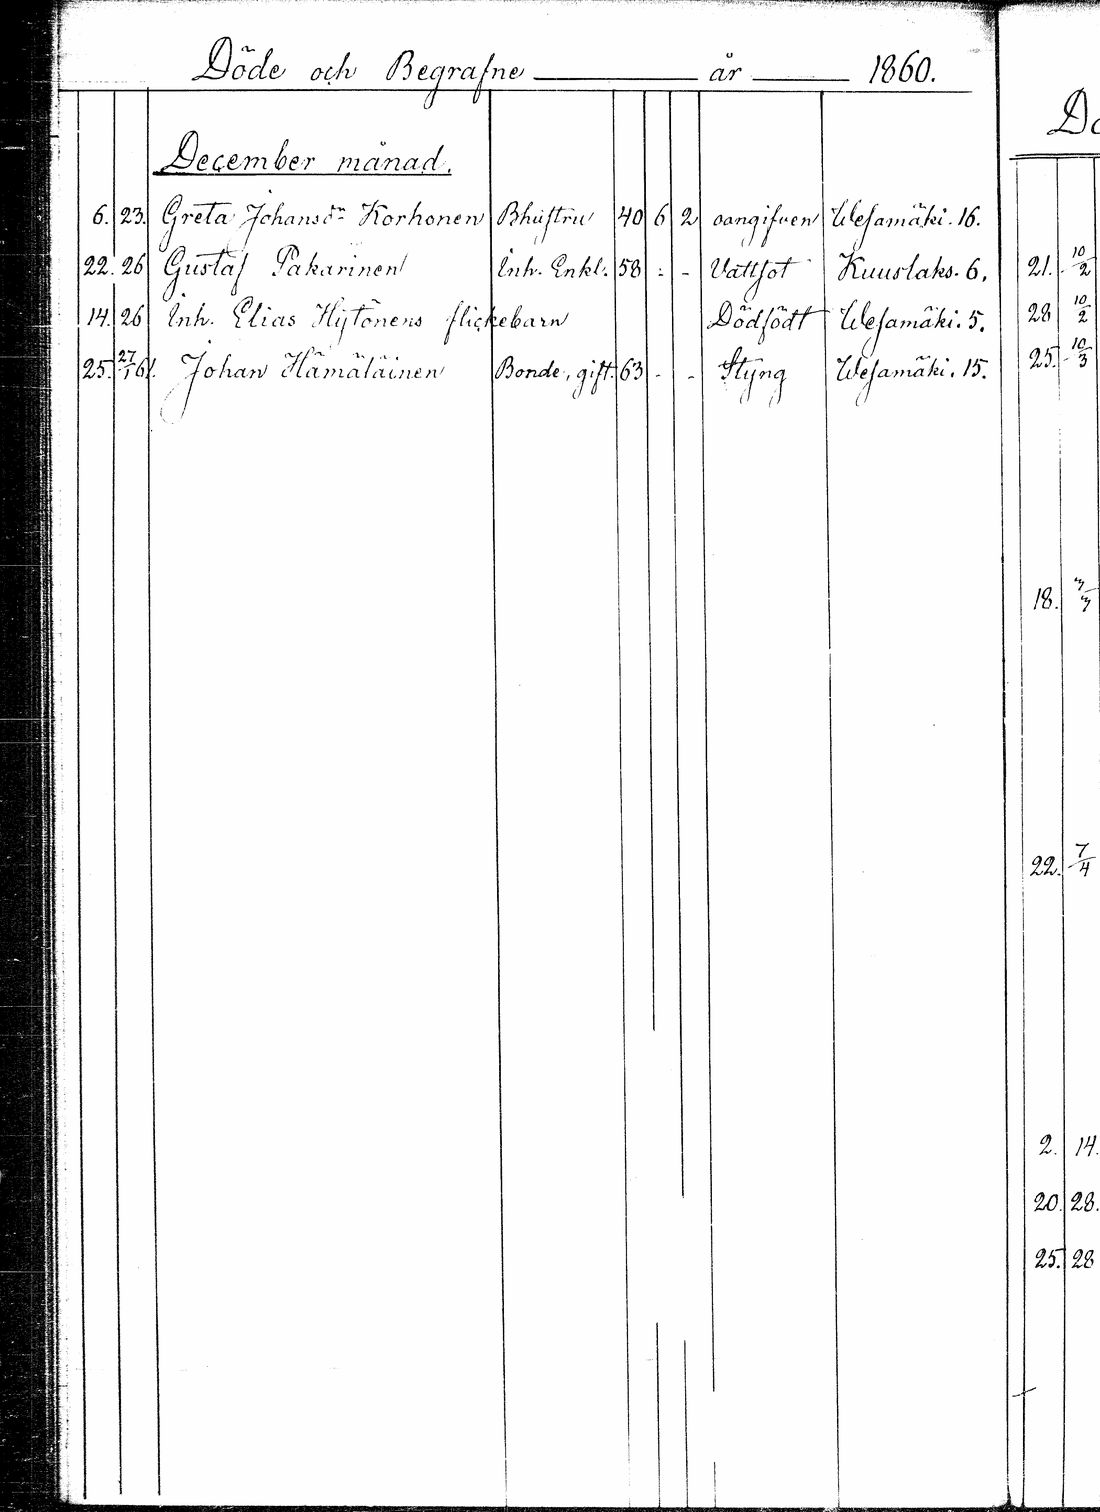 Döde och Begrafne år 1860.
December månad.
6. 23. Greta Johansdr Korhonen Bhustru 40 6 2 oangifven Wesamäki. 16.
22. 26 Gustaf Pakarinen Inh. Enkl. 58 - - Vattsot Kuuslaks. 6.
14. 26 Inh. Elias Hytönens flickebarn Dödfödt Wesamäki. 5.
25. 27/1 61. Johan Hämäläinen Bonde, gift. 63 - - Styng Wesamäki. 15.
21. 10/2
28 10/2
25. 10/3
18.
22. 7/4
2. 14.
20. 28.
25. 28